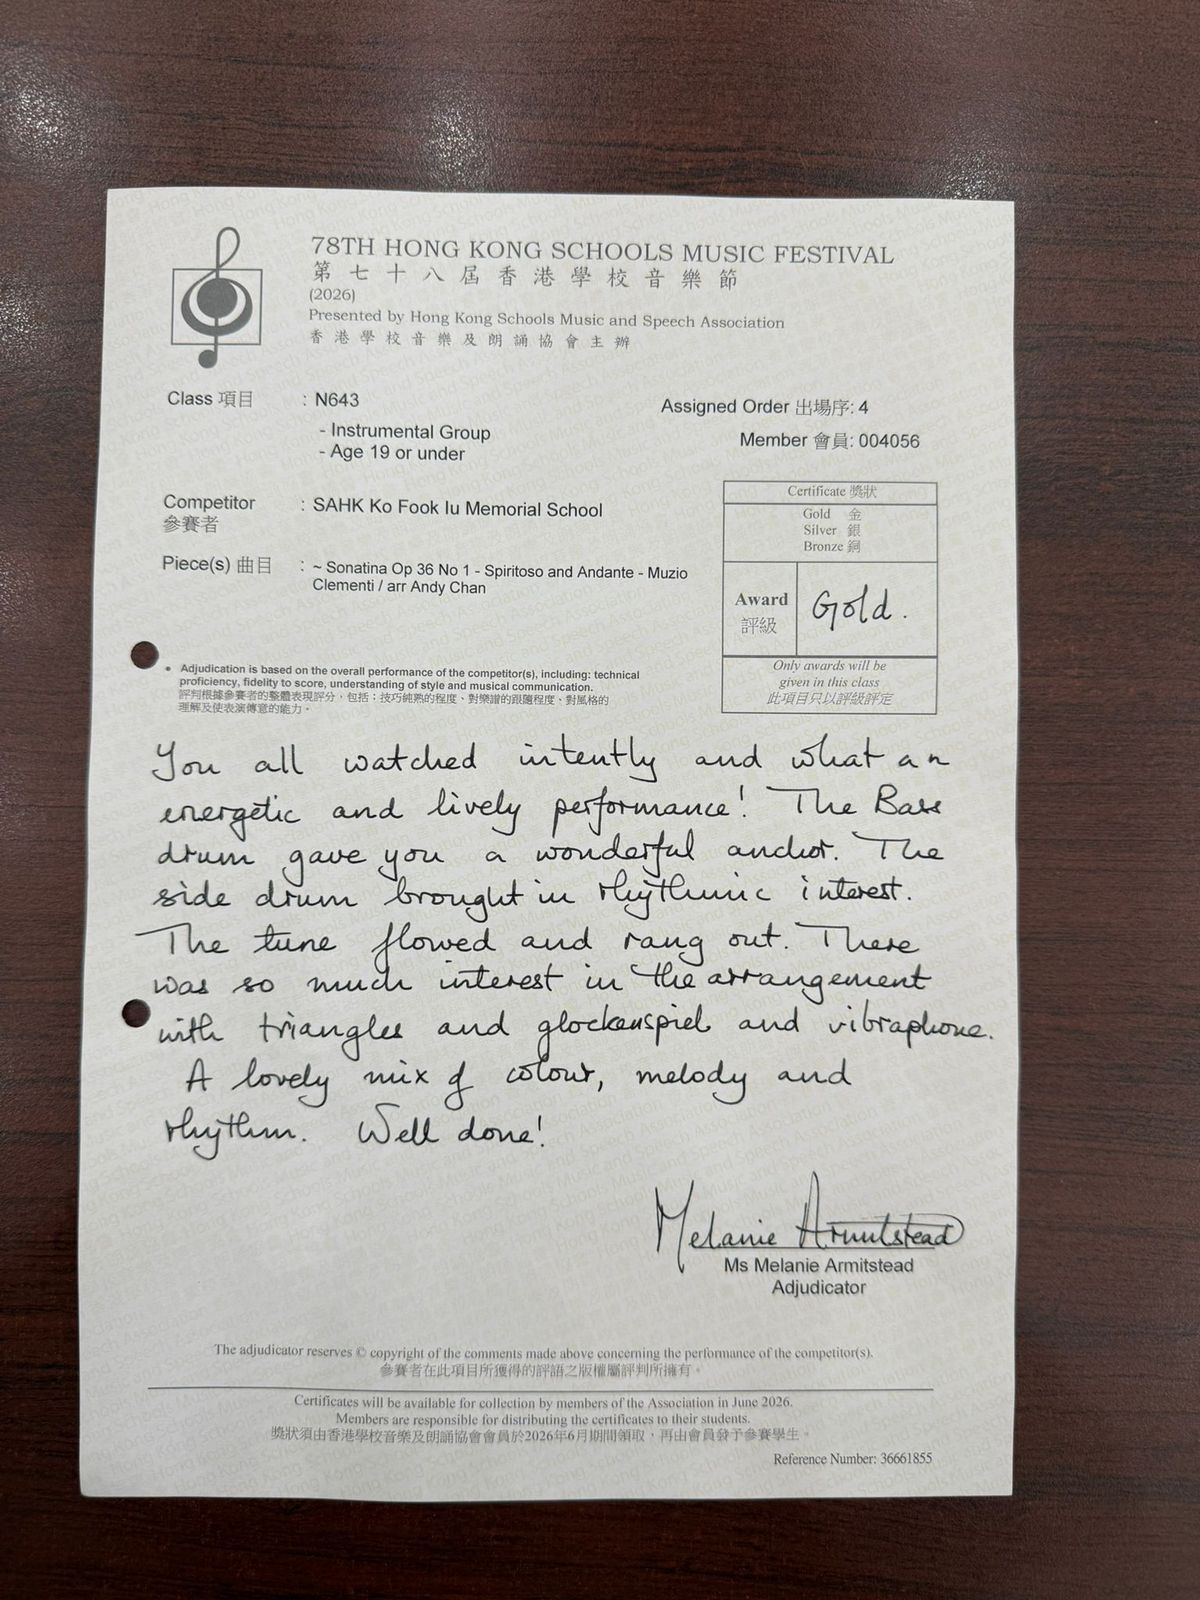 78TH HONG KONG SCHOOLS MUSIC FESTIVAL
第七十八屆香港學校音樂節
(2026)
Presented by Hong Kong Schools Music and Speech Association
香港學校音樂及朗誦協會主辦
Class 項目 : N643
- Instrumental Group
- Age 19 or under
Assigned Order 出場序: 4
Member 會員: 004056
Competitor : SAHK Ko Fook Iu Memorial School
參賽者
Piece(s) 曲目 : ~ Sonatina Op 36 No 1 - Spiritoso and Andante - Muzio
Clementi / arr Andy Chan
Certificate 獎狀
Gold 金
Silver 銀
Bronze 銅
Award
評級
Gold.
Only awards will be
given in this class
此項目只以評級評定
• Adjudication is based on the overall performance of the competitor(s), including: technical
proficiency, fidelity to score, understanding of style and musical communication.
評判根據參賽者的整體表現評分，包括：技巧純熟的程度、對樂譜的跟隨程度、對風格的
理解及使表演傳意的能力。
You all watched intently and what an
energetic and lively performance! The Bass
drum gave you a wonderful anchor. The
side drum brought in rhythmic interest.
The tune flowed and rang out. There
was so much interest in the arrangement
with triangles and glockenspiel and vibraphone.
A lovely mix of colour, melody and
rhythm. Well done!
Melanie Armitstead
Ms Melanie Armitstead
Adjudicator
The adjudicator reserves © copyright of the comments made above concerning the performance of the competitor(s).
參賽者在此項目所獲得的評語之版權屬評判所擁有。
Certificates will be available for collection by members of the Association in June 2026.
Members are responsible for distributing the certificates to their students.
獎狀須由香港學校音樂及朗誦協會會員於2026年6月期間領取，再由會員發予參賽學生。
Reference Number: 36661855